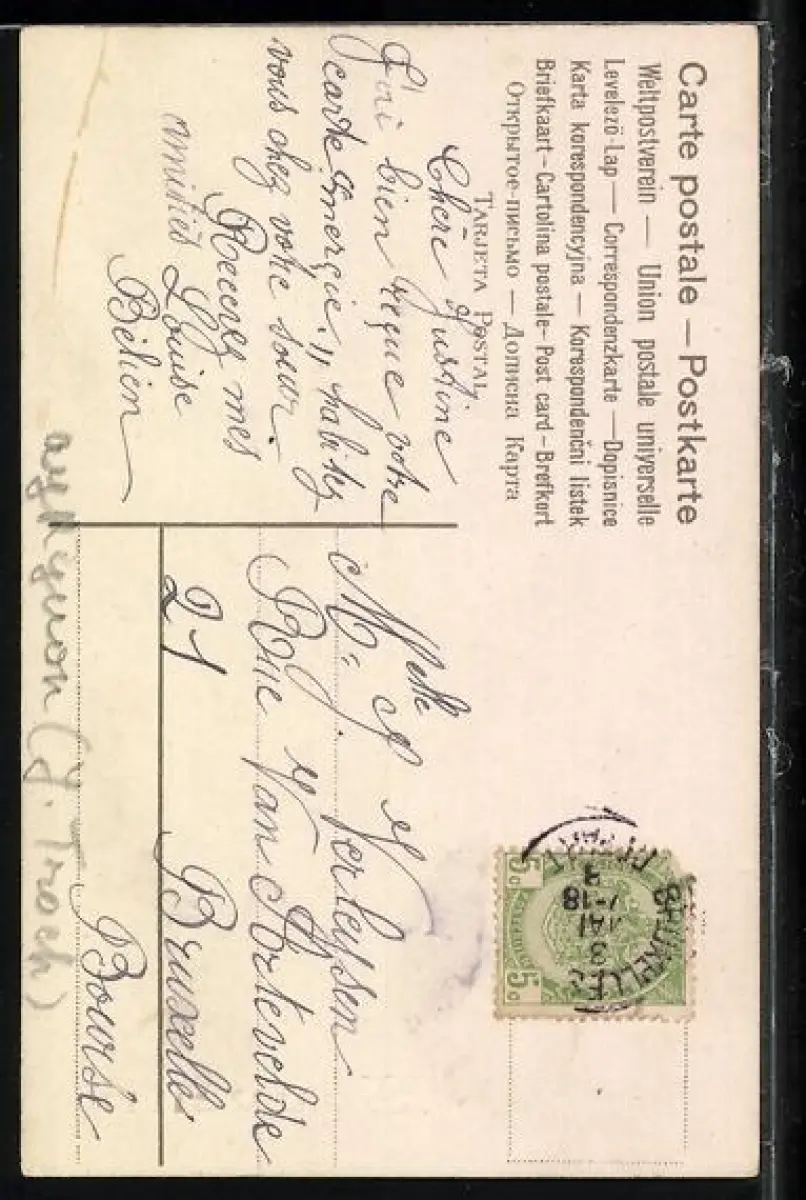 Carte postale — Postkarte
Weltpostverein — Union postale universelle
Levelező-Lap — Correspondenzkarte — Dopisnice
Karta korespondencyjna — Korespondenční listek
Briefkaart — Cartolina postale — Post card — Brefkort
Открытое-письмо — Дописна Карта
TARJETA POSTAL
Chère Justine
J'ai bien reçue votre
carte "merçie", habitez
vous chez votre soeur.
Recevez mes
amitiés Louise
Bélien
Melle J Verleysen
Rue Van Artevelde
21 Bruxelle
Bourse
5c 5c
BRUXELLES
3
MAI
DEPART